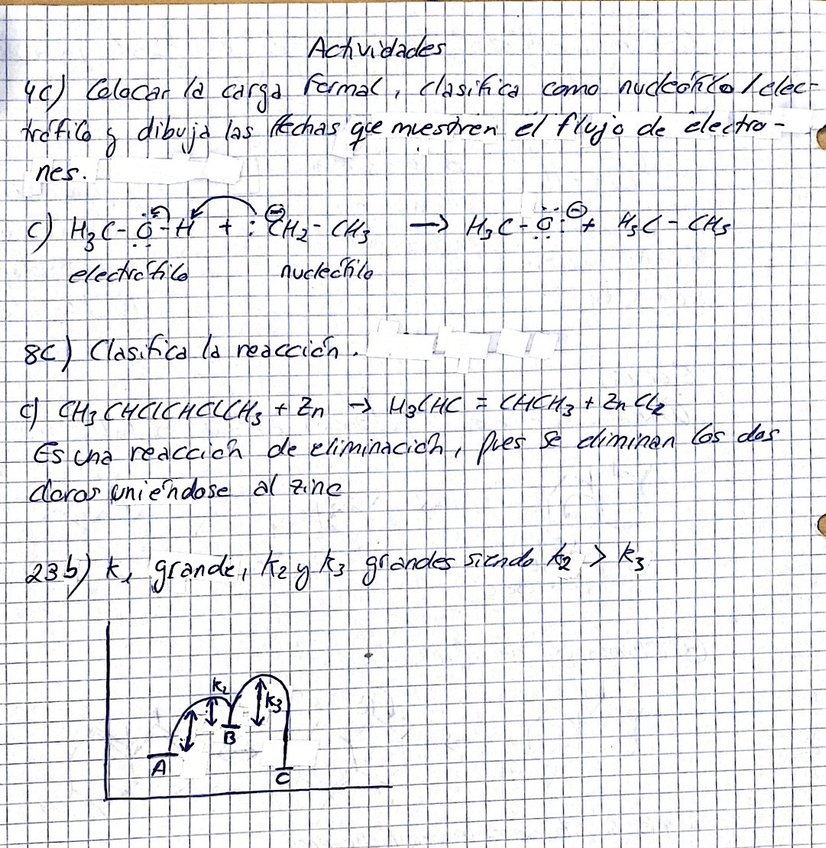 Actividades
4c) Colocar la carga formal, clasifica como nucleófilo/elec-
trófilo y dibuja las flechas que muestren el flujo de electro-
nes.
c) H₃C-Ö-H + :⊖CH₂-CH₃ → H₃C-Ö:⊖ + H₃C-CH₃
electrófilo nucleófilo
8c) Clasifica la reacción.
c) CH₃CHClCHClCH₃ + Zn → H₃CHC = CHCH₃ + ZnCl₂
Es una reacción de eliminación, pues se eliminan los dos
cloros uniéndose al zinc
23b) k₁ grande, k₂ y k₃ grandes siendo k₂ > k₃
k₂
k₃
B
A
C